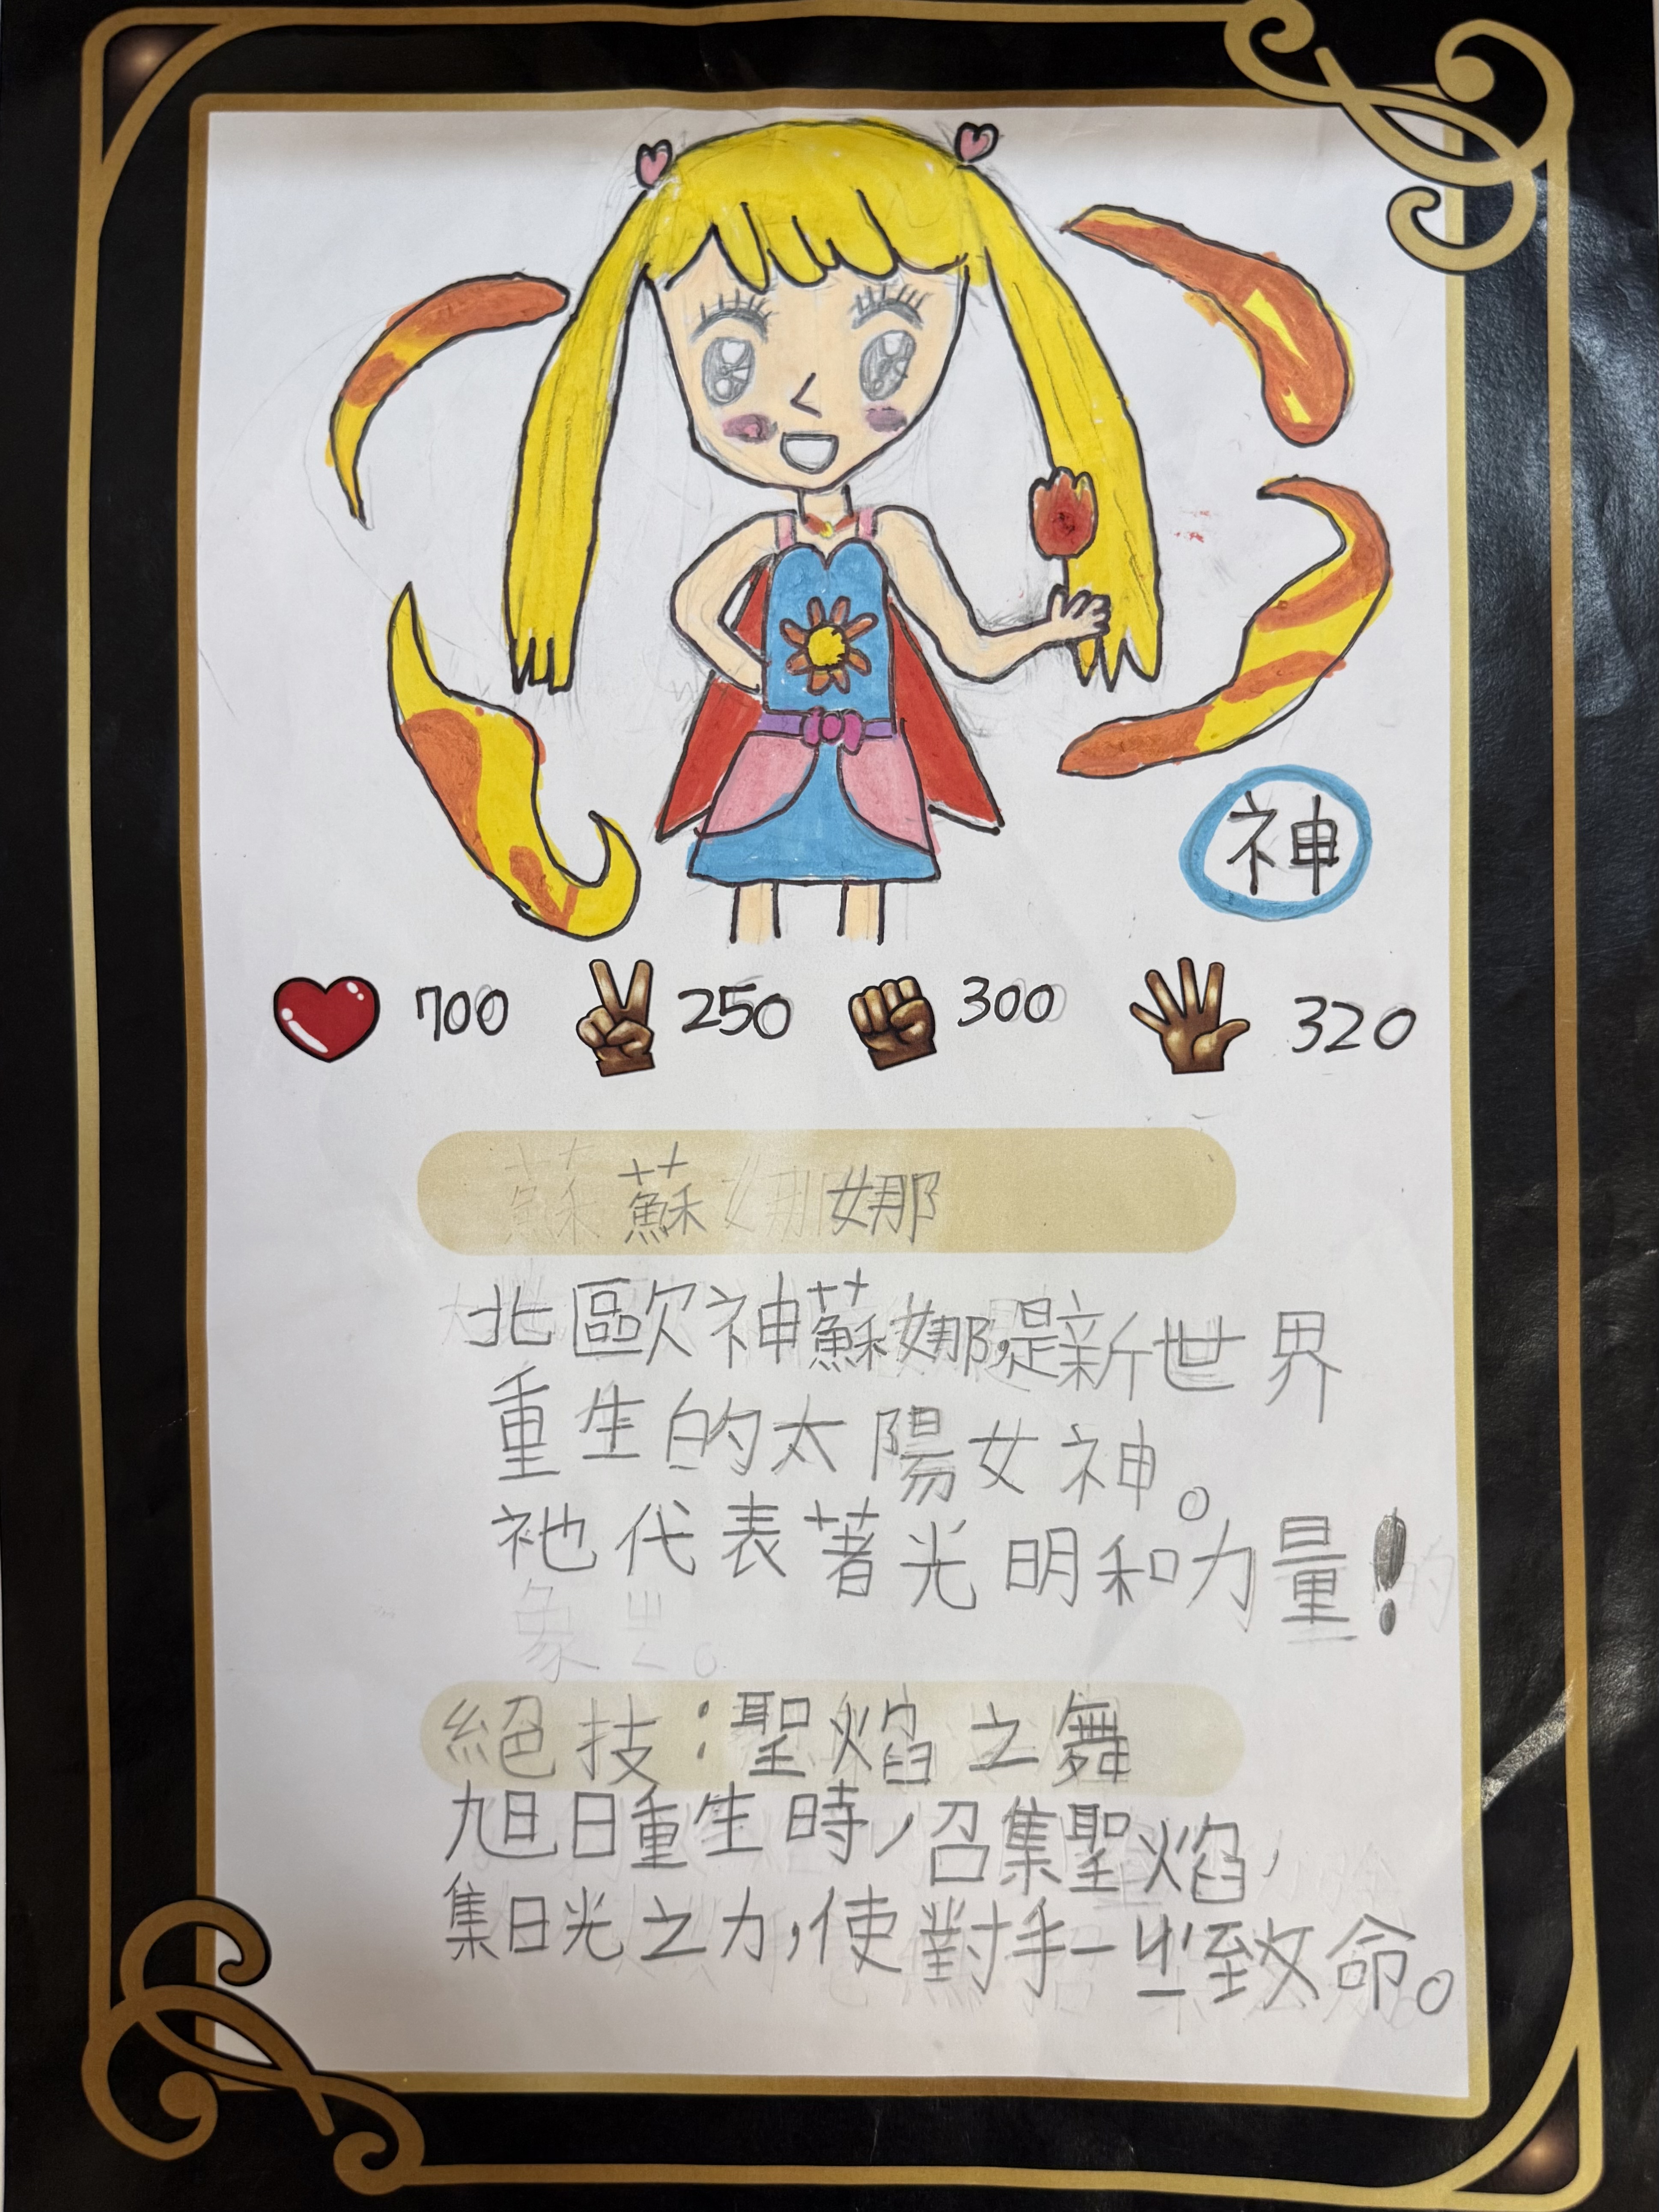 神
700 250 300 320
蘇娜
北歐神蘇娜,是新世界
重生的太陽女神。
祂代表著光明和力量!
絕技:聖焰之舞
旭日重生時,召集聖焰,
集日光之力,使對手一些致命。